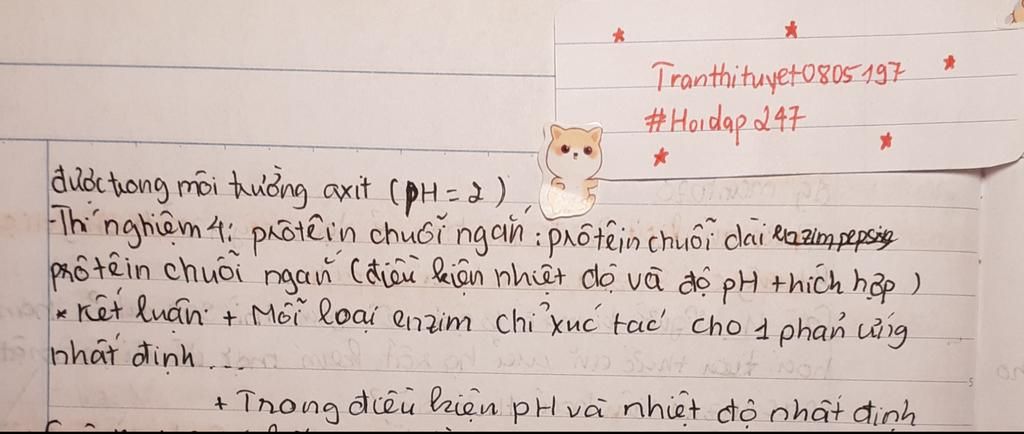 Tranthituyet0805197
#Hoidap247
được trong môi trường axit (pH = 2)
-Thí nghiệm 4: prôtêin chuỗi ngắn: prôtêin chuỗi dài enzim pepsin
prôtêin chuỗi ngắn (điều kiện nhiệt độ và độ pH thích hợp)
* Kết luận: + Mỗi loại enzim chỉ xúc tác cho 1 phản ứng
nhất định...
+ Trong điều kiện pH và nhiệt độ nhất định